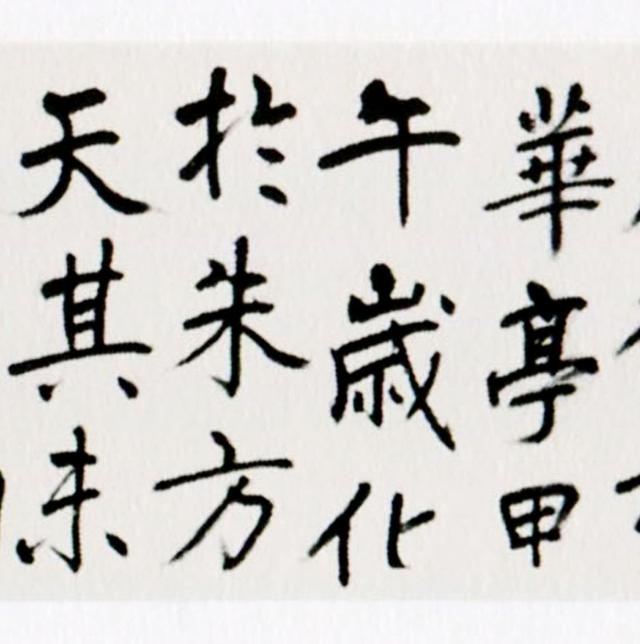 華亭甲
午歲化
於朱方
天其未